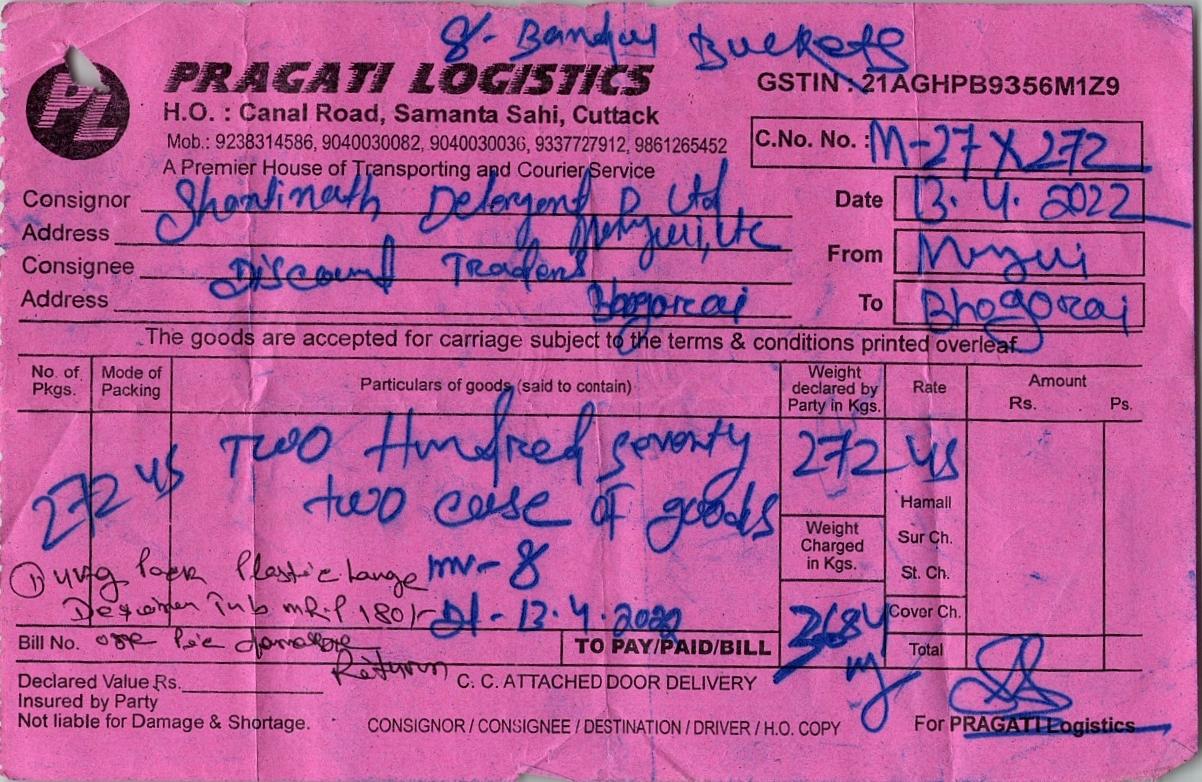 8- Bandal Buckets
PL
PRAGATI LOGISTICS
GSTIN : 21AGHPB9356M1Z9
H.O. : Canal Road, Samanta Sahi, Cuttack
Mob.: 9238314586, 9040030082, 9040030036, 9337727912, 9861265452
C.No. No. : M-27 X 272
A Premier House of Transporting and Courier Service
Consignor Shantinath P Ltd
Date 13.4.2022
Address
From
Consignee Discount Traders
Address Bhogorai
To Bhogorai
The goods are accepted for carriage subject to the terms & conditions printed overleaf.
No. of Pkgs. Mode of Packing Particulars of goods (said to contain) Weight declared by Party in Kgs. Rate Amount Rs. Ps.
272 Two Hundred seventy 272
two case of goods
Hamali
Weight Charged in Kgs.
Sur Ch.
St. Ch.
Pack Plastic mv- 8
Tub mRP 180/- Dt - 13.4.2022
Cover Ch.
Bill No. TO PAY/PAID/BILL
Total
Return
Declared Value Rs. C. C. ATTACHED DOOR DELIVERY
Insured by Party
Not liable for Damage & Shortage. CONSIGNOR / CONSIGNEE / DESTINATION / DRIVER / H.O. COPY For PRAGATI Logistics